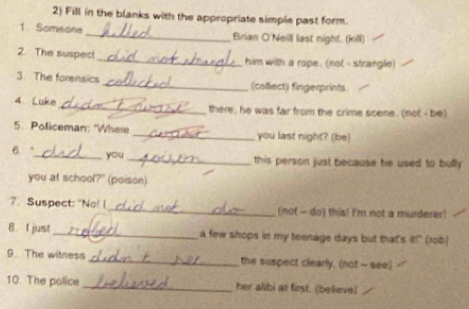 2) Fill in the blanks with the appropriate simple past form.
1. Someone killed Brian O'Neill last night. (kill)
2. The suspect did not strangle him with a rope. (not - strangle)
3. The forensics collected (collect) fingerprints.
4. Luke there, he was far from the crime scene. (not - be)
5. Policeman: "Where you last night? (be)
6. "did you poison this person just because he used to bully
you at school?" (poison)
7. Suspect: "No! I did not do (not – do) this! I'm not a murderer!
8. I just robed a few shops in my teenage days but that's it!" (rob)
9. The witness didn't the suspect clearly. (not – see)
10. The police believed her alibi at first. (believe)